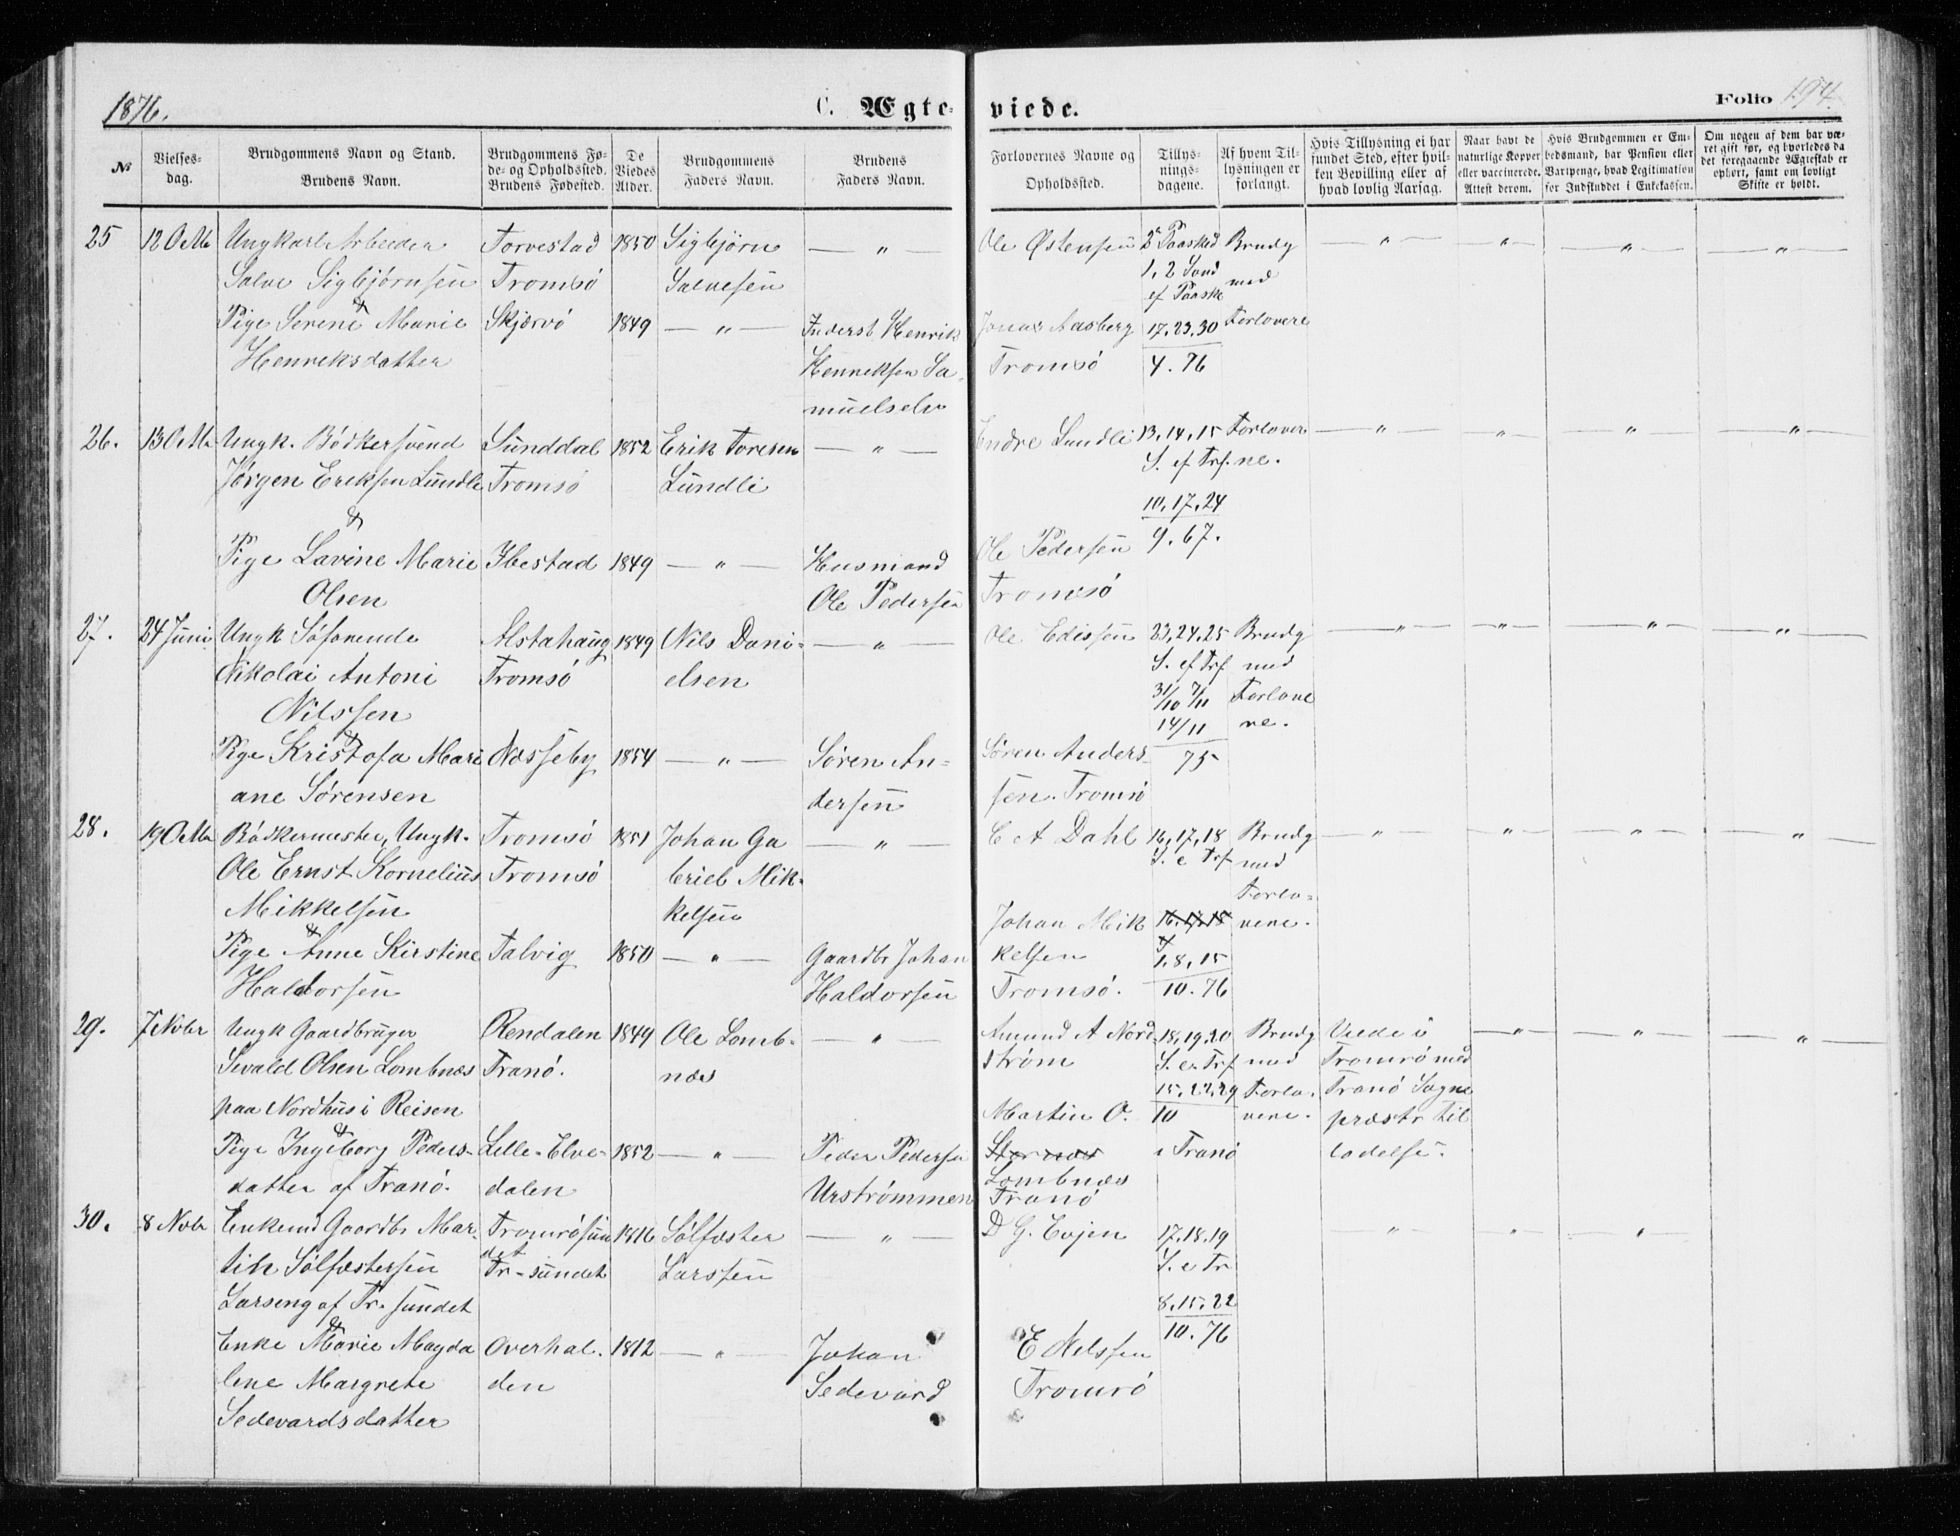 1876.
C. Ægte-
viede.
Folio 194.
№
Vielses-
dag.
Brudgommens Navn og Stand.
Brudens Navn.
Brudgommens Fø-
de- og Opholdssted.
Brudens Fødested.
De
Viedes
Alder.
Brudgommens
Faders Navn.
Brudens
Faders Navn.
Forlovernes Navne og
Opholdssted.
Tillys-
nings-
dagene.
Af hvem Til-
lysningen er
forlangt.
Hvis Tillysning ei har
fundet Sted, efter hvil-
ken Bevilling eller af
hvad lovlig Aarsag.
Naar havt de
naturlige Kopper
eller vaccinerede.
Attest derom.
Hvis Brudgommen er Em-
bedsmand, har Pension eller
Vartpenge, hvad Legitimation
for Indskuddet i Enkekassen.
Om nogen af dem har væ-
ret gift før, og hvorledes da
det foregaaende Ægteskab er
ophørt, samt om lovligt
Skifte er holdt.
25
12 Octb
Ungkarl Arbeider
Salve Sigbjørnsen
&
Pige Serene Marie
Henriksdatter
Torvestad
Tromsö
Skjærvö
1850
1849
Sigbjörn
Salvesen
— " —
— " —
Inderst Henrik
Henriksen Sa-
muelselv
Ole Østensen
Jonas Aasberg
Tromsö
2 Paasked
1, 2 Sönd
ef Paaske
17, 23, 30
4. 76
Brudg
med
Forlovere
— " —
— " —
— " —
— " —
26.
13 Octb
Ungk. Bödkersvend
Jörgen Eriksen Lundli
&
Pige Lavine Marie
Olsen
Sunddal
Tromsö
Ibestad
1852
1849
Erik Toresen
Lundli
— " —
— " —
Husmand
Ole Pedersen
Endre Lundli
Ole Pedersen
Tromsö
13, 14, 15
S. ef Trf.
10, 17, 24
9. 67.
Forlover
ne.
— " —
— " —
— " —
— " —
27.
24 Juni
Ungk Söfarende
Nikolai Antoni
Nilssen
&
Pige Kristofa Mari
ane Sørensen
Alstahaug
Tromsö
Næsseby
1849
1854
Nils Dani-
elsen
— " —
— " —
Søren An-
dersen
Ole Edissen
Søren Anders
sen. Tromsö
23, 24, 25
S. ef Trf
31/10 7/11
14/11
75
Brudg
med
Forlove
ne.
— " —
— " —
— " —
— " —
28.
19 Octb
Bödkermester, Ungk.
Ole Ernst Kornelius
Mikkelsen
&
Pige Anne Kirstine
Haldorsen
Tromsö
Tromsö
Talvig
1851
1850
Johan Ga
briel Mik-
kelsen
— " —
— " —
Gaardbr Johan
Haldorsen
C A Dahl
Johan Mik
kelsen
Tromsö.
16, 17, 18
S. e Trf
16, 17, 18
1, 8, 15
10. 76
Brudg
med
Forlo-
vere.
— " —
— " —
— " —
— " —
29.
7 Nobr
Ungk Gaardbruger
Sivald Olsen Lombnæs
paa Nordhus i Reisen
&
Pige Ingeborg Peders-
datter af Tranö.
Rendalen
Tranö.
Lille-Elve-
dalen
1849
1852
Ole Lomb-
næs
— " —
— " —
Peder Pedersen
Urströmmen
Amund A Nord
ström
Martin O.
Stornæs
Lombnæs
Tranö
18, 19, 20
S. e. Trf
15, 22, 29
10
i Tranö
Brudg
med
Forlo-
vere.
Viede i
Tromsö med
Tranö Sogne
præsts til
ladelse.
— " —
— " —
— " —
30.
8 Nobr
Enkemd Gaardbr Mar-
tin Sölfæstersen
Larseng af Tr. sundet
&
Enke Marie Magda
lene Margrete
Sedevardsdatter
Tromsösun
det
Tr-sundet
Overhal-
den
1816
1812
Sölfæster
Larssen
— " —
— " —
Johan
Sedevard
D G. Evjen
E Nelssen
Tromsö
17, 18, 19
S. e Tr
8, 15, 22
10. 76
— " —
— " —
— " —